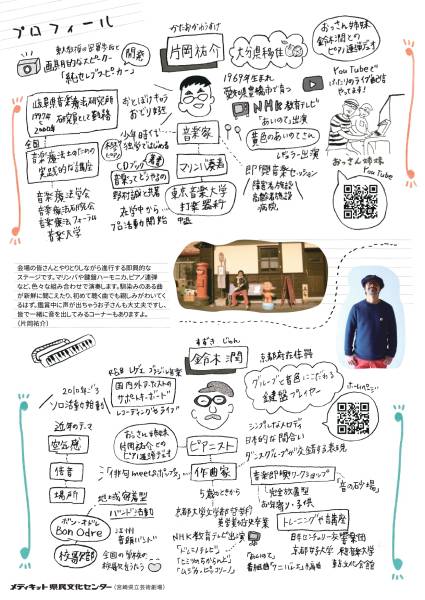 プロフィール
かたおかゆうすけ
片岡祐介
大分県移住
おっさん姉妹
鈴木潤との
ピアノ連弾デュオ
開発
画期的なスピーカー
「純セレブスピーカー」
岐阜県音楽療法研究所
1997年
2000年
研究員として勤務
全国
音楽療法士のための
実践的な講座
音楽療法学会
音楽療法研究会
音楽療法フォーラム
音楽大学
おとぼけキャラ
おどり担当
少年時代
独学ではじめる
CDブック
著書
音楽ってどうやるの
野村誠と共著
音楽家
マリンバ奏者
東京音楽大学
打楽器科
中退
在学中から…
プロ活動開始
1969年生まれ
愛知県豊橋市で育つ
NHK教育テレビ
「あいのて」出演
黄色のあいのてさん
レギュラー出演
即興音楽セッション
障害者施設
高齢者施設
病院
YouTubeで
ほったりのライブ配信
やってます!
おっさん姉妹
YouTube
会場の皆さんとやりとりしながら進行する即興的な
ステージです。マリンバや鍵盤ハーモニカ、ピアノ連弾
など、色々な組み合わせで演奏します。馴染みのある曲
が新鮮に聞こえたり、初めて聴く曲でも親しみがわいてく
るはず。鑑賞中に声が出ちゃうお子さんも大丈夫ですし、
皆で一緒に音を出してみるコーナーもありますよ。
(片岡祐介)
すずき じゅん
鈴木潤
京都府在住
国内外アーティストの
サポートキーボード
レコーディングやライブ
グルーヴと音色にこだわる
鍵盤プレイヤー
ホームページ
2010年ごろ
ソロ活動も始動
近年のテーマ
空気感
倍音
場所
おっさん姉妹
片岡祐介との
ピアノ連弾デュオ
ピアニスト
作曲家
「俳句meetsポップス」
シンプルなメロディ
日本的な間合い
ダンスグルーヴが交錯する表現
音楽即興ワークショップ
「音の砂場」
完全放置型
お年寄り・子供
地域密着型
バンド活動
ボン・オドレ
Bon Odre
江州
音頭バンド
校歌部
全国の学校の
校歌を歌う
5歳のときから
京都大学文学部哲学科
美学美術史卒業
NHK教育テレビ出演
「ドレミノテレビ」
「あいのて」
トレーニングや音講座
京都女子大学
メディキット県民文化センター (宮崎県立芸術劇場)